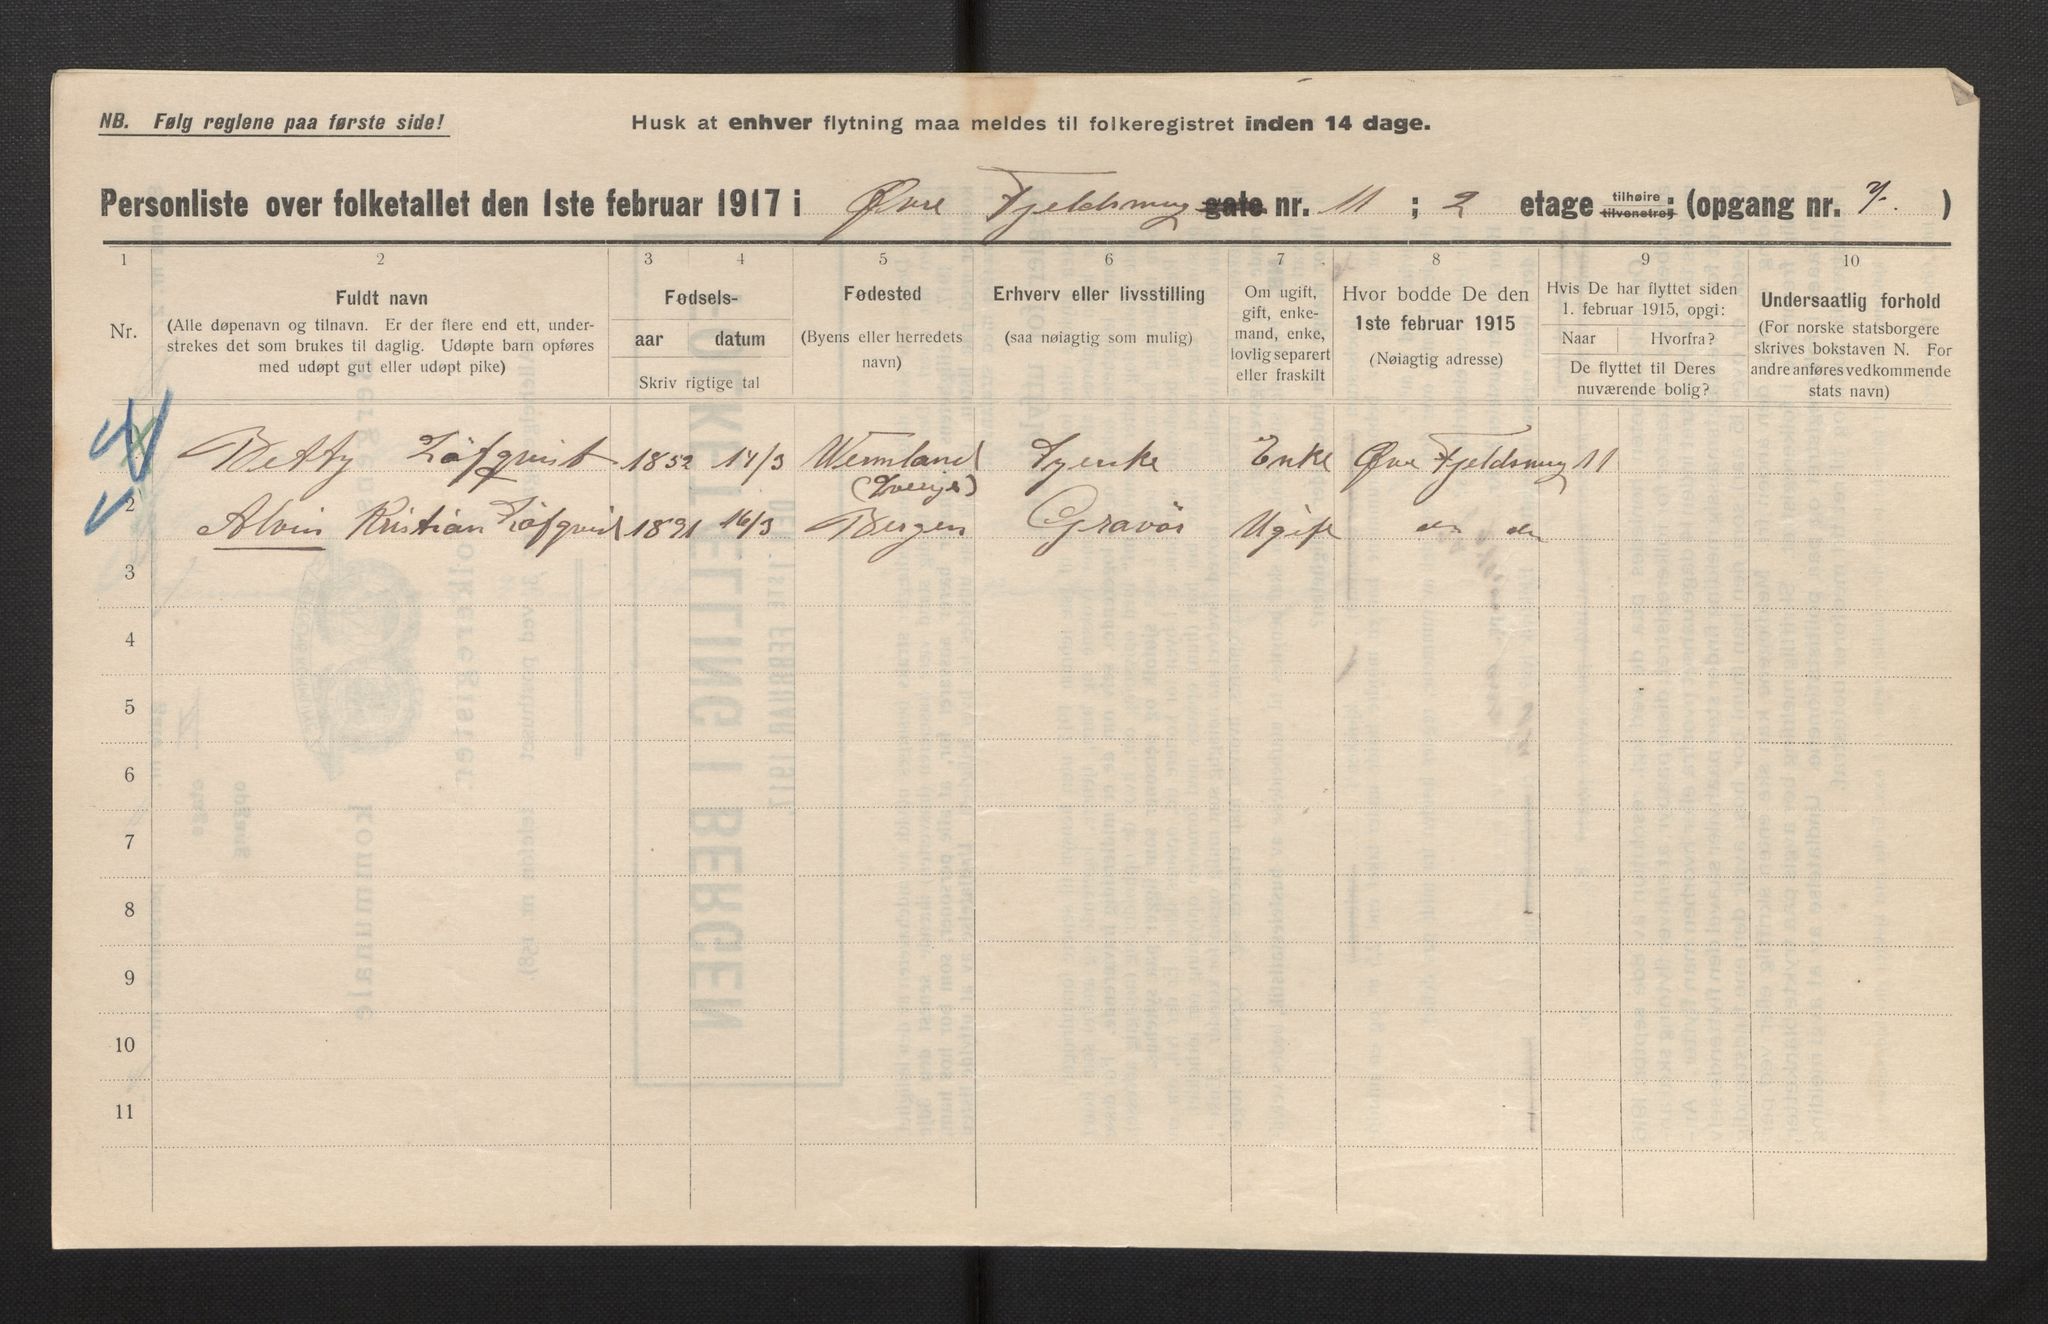 NB. Følg reglene paa første side!
Husk at enhver flytning maa meldes til folkeregistret inden 14 dage.
Personliste over folketallet den 1ste februar 1917 i Øvre Fjeldsmug gate nr. 11 ; 2 etage tilhøire tilvenstre; (opgang nr. )
1 2 3 4 5 6 7 8 9 10
Nr.
Fuldt navn
(Alle døpenavn og tilnavn. Er der flere end ett, under-
strekes det som brukes til daglig. Udøpte barn opføres
med udøpt gut eller udøpt pike)
Fødsels-
aar datum
Skriv rigtige tal
Fødested
(Byens eller herredets
navn)
Erhverv eller livsstilling
(saa nøiagtig som mulig)
Om ugift,
gift, enke-
mand, enke,
lovlig separert
eller fraskilt
Hvor bodde De den
1ste februar 1915
(Nøiagtig adresse)
Hvis De har flyttet siden
1. februar 1915, opgi:
Naar Hvorfra?
De flyttet til Deres
nuværende bolig?
Undersaatlig forhold
(For norske statsborgere
skrives bokstaven N. For
andre anføres vedkommende
stats navn)
Betty Löfqvist 1852 14/3 Wermland Syerske Enke Øvre Fjeldsmug 11
(Sverige)
2 Alvin Kristian Löfqvist 1891 16/3 Bergen Gravör Ugift do do
3
4
5
6
7
8
9
10
11